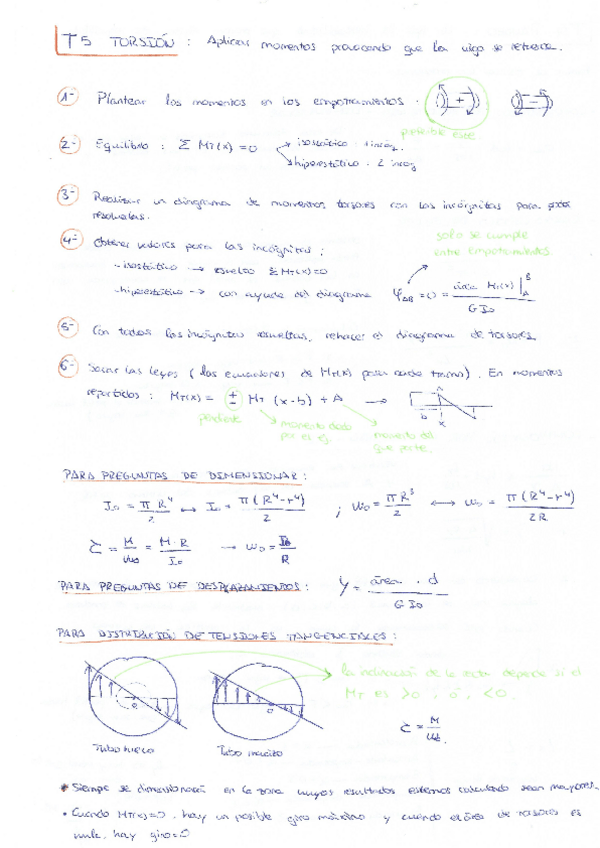 T5 TORSIÓN : Aplicar momentos provocando que la viga se retuerza.
1- Plantear los momentos en los empotramientos.
+
-
preferible este
2- Equilibrio : Σ MT(x) = 0
isostático : 1 incóg.
hiperestático : 2 incóg
3- Realizar un diagrama de momentos torsores con las incógnitas para poder
resolverlas.
4- Obtener valores para las incógnitas :
solo se cumple
entre Empotramientos.
- isostático → resuelto Σ MT(x)=0
- hiperestático → con ayuda del diagrama φAB = 0 = área MT(x) |AB / G Io
5- Con todas las incógnitas resueltas, rehacer el diagrama de torsores.
6- Sacar las leyes ( las ecuaciones de MT(x) para cada tramo). En momentos
repartidos : MT(x) = ± MT (x-b) + A →
b
x
pendiente
momento dado
por el ej.
momento del
que parte.
PARA PREGUNTAS DE DIMENSIONAR :
Io = π R⁴ / 2 ↔ Io = π (R⁴-r⁴) / 2 ; Wo = π R³ / 2 ↔ Wo = π (R⁴-r⁴) / 2R
τ = M / Wo = M · R / Io → Wo = Io / R
PARA PREGUNTAS DE DESPLAZAMIENTOS : Y = área · d / G Io
PARA DISTRIBUCIÓN DE TENSIONES TANGENCIALES :
la inclinación de la recta depende si el
MT es >0, ó, <0.
τ = M / Wo.
Tubo hueco
Tubo macizo
* Siempre se dimensionará en la zona cuyos resultados externos calculado sean mayores.
• Cuando MT(x)=0, hay un posible giro máximo y cuando el área de torsores es
nula, hay giro=0